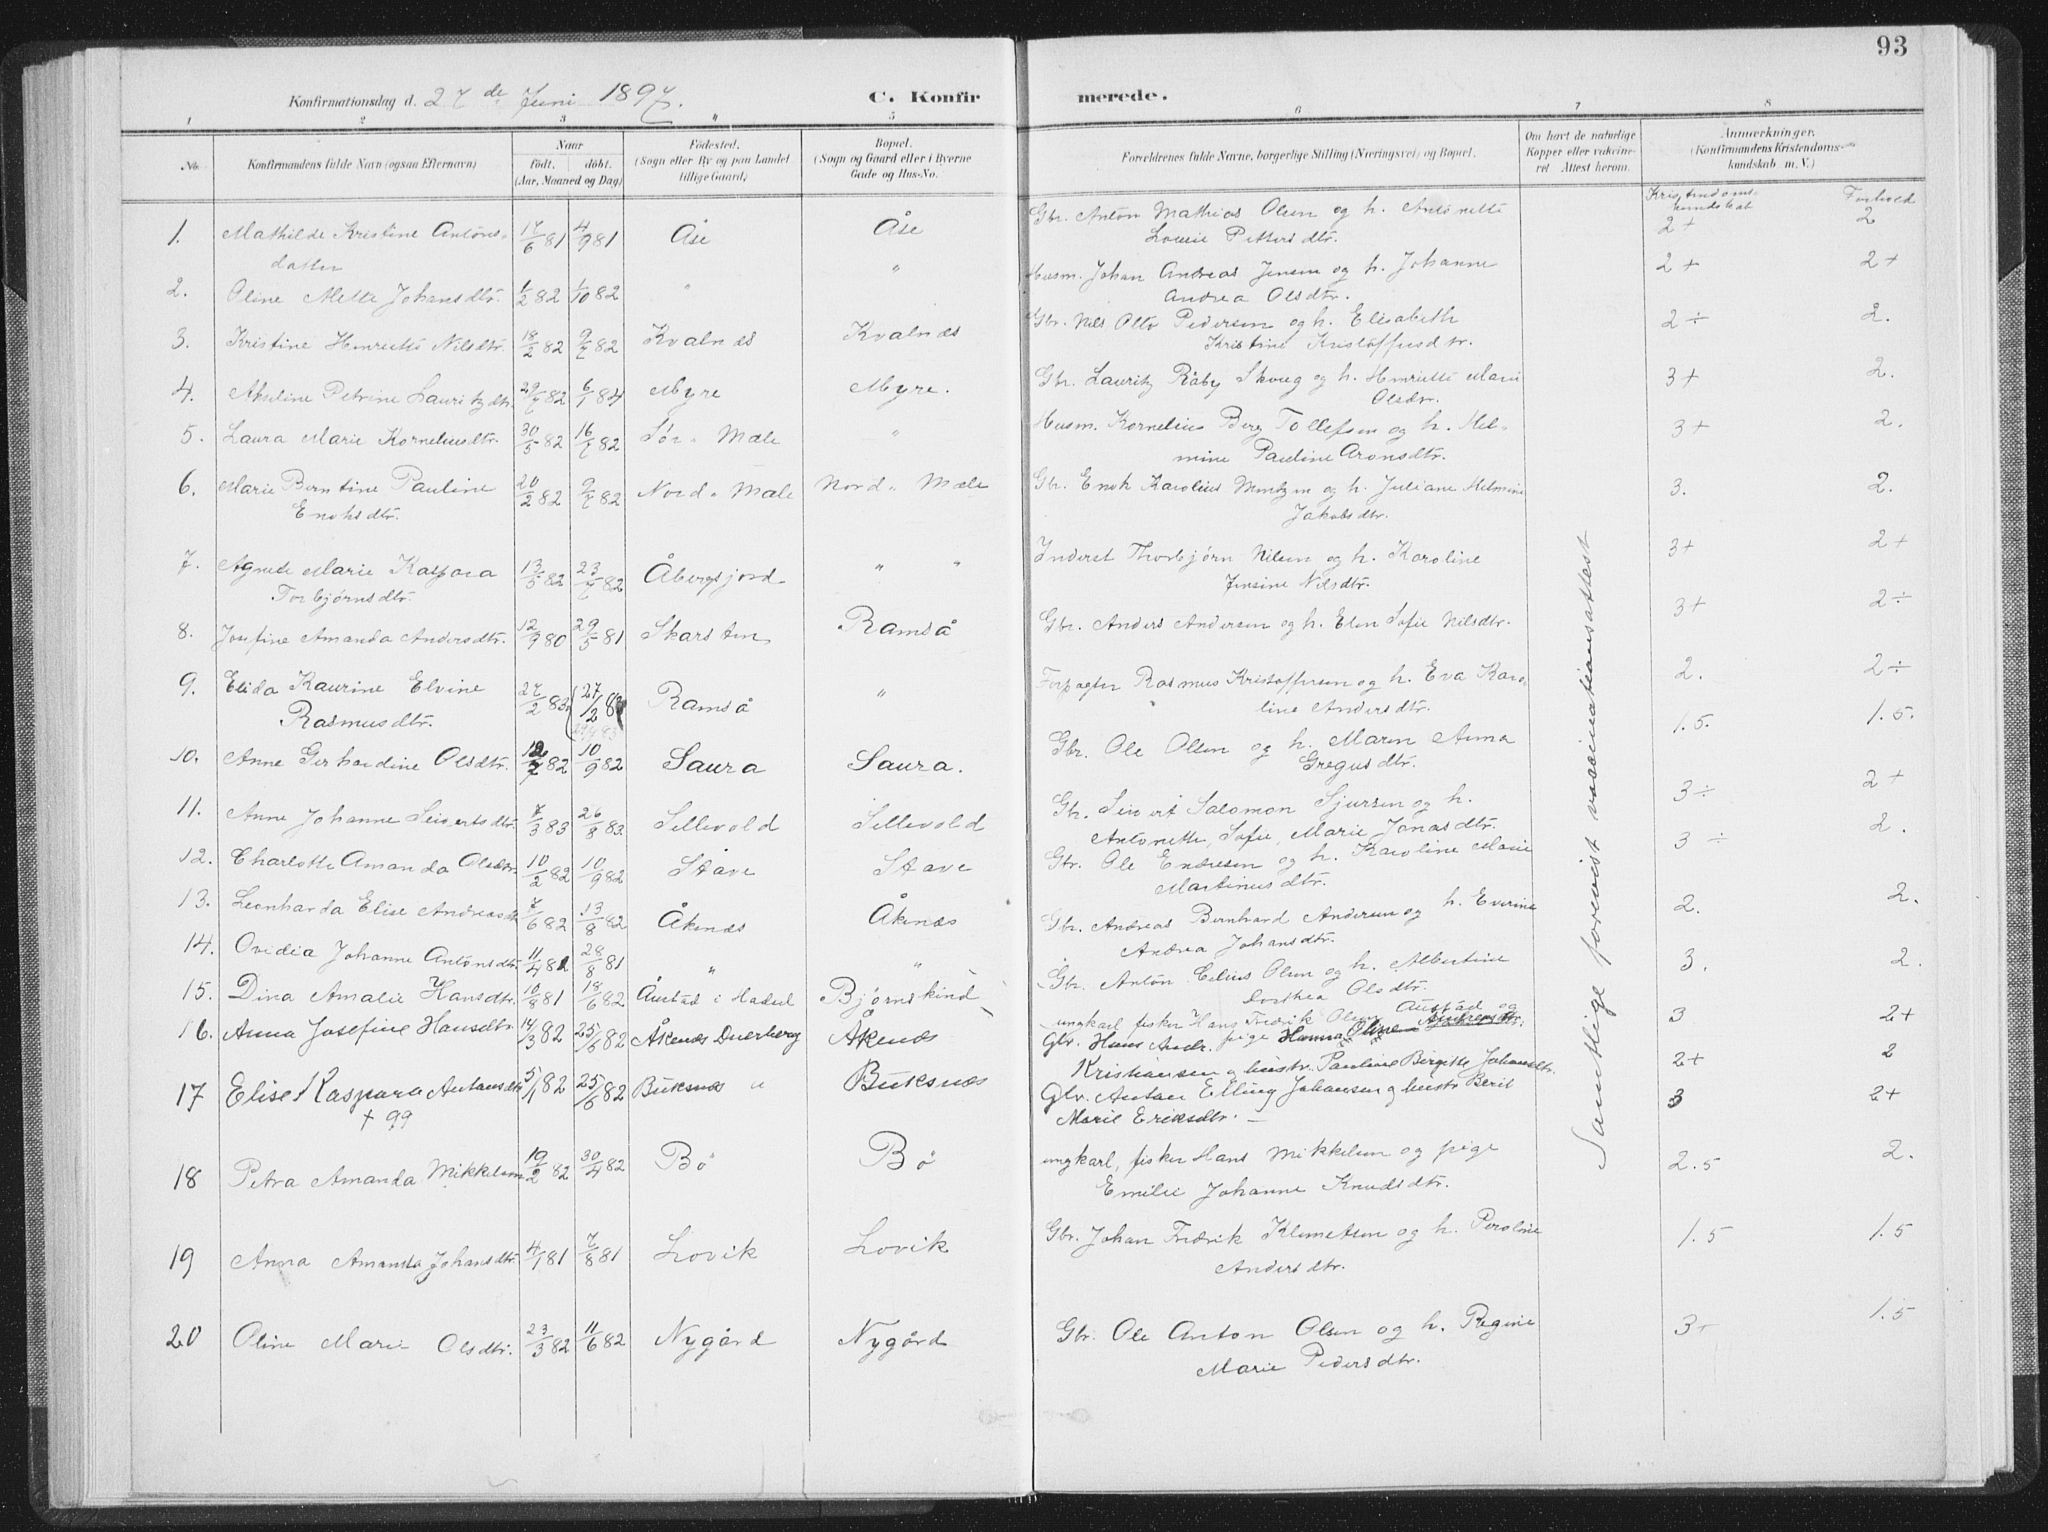 93
Konfirmationsdag d. 27de Juni 1897.
C. Konfirmerede.
1 2 3 " 5 6 7 8
No. Konfirmandens fulde Navn (ogsaa Efternavn) Naar født, døbt. (Aar, Maaned og Dag) Fødested. (Sogn eller By og paa Landet tillige Gaard) Bopæl. (Sogn og Gaard eller i Byerne Gade og Hus-No. Forældrenes fulde Navne, borgerlige Stilling (Næringsvei) og Bopæl. Om havt de naturlige Kopper eller vakcineret Attest herom. Anmærkninger. (Konfirmandens Kristendomskundskab m. V.)
Kristendomskundskab Forhold
1. Mathilde Kristine Antons- 17/6 81 4/9 81 Åse Åse Gbr. Anton Mathias Olsen og h. Antonette 2+ 2
datter Lovise Petters dtr.
2. Oline Mette Johansdtr. 1/2 82 1/10 82 " " Husm. Johan Andreas Jensen og h. Johanne 2+ 2+
Andrea Olsdtr.
3. Kristine Henriette Nilsdtr. 18/2 82 9/7 82 Kvalnæs Kvalnæs Gbr. Nils Otto Pedersen og h. Elisabeth 2÷ 2.
Kristine Kristoffersdtr.
4. Akseline Petrine Lauritzdtr. 29/7 82 6/1 84 Myre Myre. Gbr. Lauritz Råby Skoug og h. Henriette Marie 3+ 2.
Olsdtr.
5. Laura Marie Korneliusdtr. 30/5 82 16/7 82 Sør-Mæle " Husm. Kornelius Berg Tollefsen og h. Hel- 3+ 2.
mine Pauline Aronsdtr.
6. Marie Berntine Pauline 20/2 82 9/7 82 Nord-Mæle Nord-Mæle Gbr. Enok Karolius Mentzen og h. Juliane Helmine 3. 2.
Enoksdtr. Jakobsdtr.
7. Agnete Marie Kaspara 13/5 82 23/7 82 Åbergsjord " " Inderst Thorbjørn Nilsen og h. Karoline 3+ 2+
Torbjørnsdtr. Jensine Nilsdtr.
8. Josefine Amanda Andersdtr. 12/9 80 29/5 81 Skarsten Ramså Gbr. Anders Andersen og h. Elen Sofie Nilsdtr. 3+ 2÷
9. Elida Kaurine Elvine 27/2 83 27/12 8 Ramså " Forpagter Rasmus Kristoffersen og h. Eva Karo- 2. 2÷
Rasmusdtr. line Andersdtr.
10. Anne Gerhardine Olsdtr. 12/7 82 10/9 82 Saura Saura. Gbr. Ole Olsen og h. Maren Anna 1.5. 1.5.
Gregusdtr.
11. Anne Johanne Seivertsdtr. 7/3 83 26/8 83. Sellevold Sellevold Gbr. Seivert Salomon Sjursen og h. 3÷ 2+
Antonette, Sofie, Marie Jonasdtr.
12. Charlotte Amanda Olsdtr. 10/2 82 10/9 82 Stave Stave Gbr. Ole Endresen og h. Karoline Marie 3÷ 2.
Martinusdtr.
13. Leonharda Elise Andreasdtr 7/6 82 13/8 82 Åknæs Åknæs Gbr. Andreas Bernhard Andersen og h. Everine 2. 2.
Andrea Johansdtr.
14. Ovidia Johanne Antonsdtr. 11/4 81 28/8 81 " " Gbr. Anton Edius Olsen og h. Albertine 3. 2.
Dorthea Olsdtr.
15. Dina Amalie Hansdtr. 10/8 81 18/6 82 Åustad i Hadsel Bjørnskind ungkarl fisker Hans Fredrik Olsen Austad og 3 2+
pige Hanna Oline Andreasdtr.
16. Anna Josefine Hansdtr. 14/3 82 25/6 82 Åknæs Dverberg Åknæs Gbr. Hans Andr. 2+ 2
Kristiansen og hustr. Pauline Birgitte Johansdtr.
17 Elise Kaspara Antonsdtr 5/1 82 25/6 82 Buksnæs " Buksnæs Gbr. Anton Elling Johansen og hustr Berit 3 2+
+ 99 Marie Eriksdtr. —
18 Petra Amanda Mikkelsen 19/2 82 30/4 82 Bø Bø ungkarl, fisker Hans Mikkelsen og pige 2.5 2.
Emilie Johanne Knudsdtr.
19 Anna Amanda Johansdtr. 4/1 81 7/8 81 Lovik Lovik Gbr. Johan Fredrik Klemetsen og h. Peroline 1.5 1.5
Andersdtr.
20 Oline Marie Olsdtr. 23/3 82 11/6 82 Nygård Nygård Gbr. Ole Anton Olsen og h. Regine 3+ 1.5
Marie Pedersdtr.
Samtlige forevist vaccinationsattest